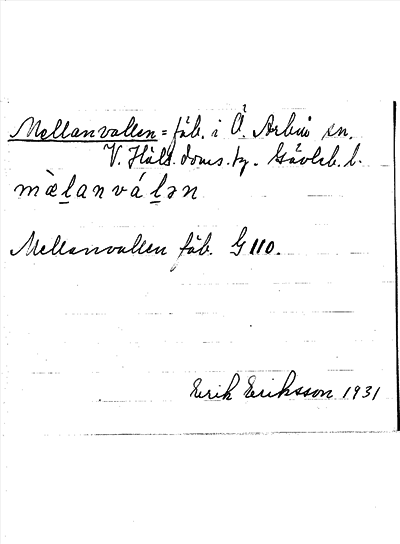 Mellanvallen = fäb. i Å. Arbrå sn.
V. Häls. doms. tg. Gävleb. l.
mὲl̲anvál̲ən
Mellanvallen fäb. G 110.
Erik Eriksson 1931